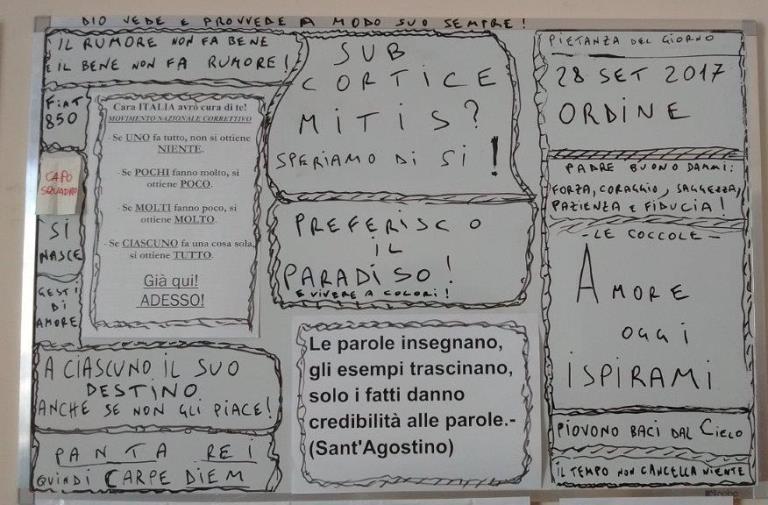 DIO VEDE E PROVVEDE A MODO SUO SEMPRE!
IL RUMORE NON FA BENE
E IL BENE NON FA RUMORE!
FIAT
850
CAPO
SQUADRA
SI
NASCE
GESTI
DI
AMORE
Cara ITALIA avrò cura di te!
MOVIMENTO NAZIONALE CORRETTIVO
- Se UNO fa tutto, non si ottiene
NIENTE.
- Se POCHI fanno molto, si
ottiene POCO.
- Se MOLTI fanno poco, si
ottiene MOLTO.
- Se CIASCUNO fa una cosa sola,
si ottiene TUTTO.
Già qui!
ADESSO!
A CIASCUNO IL SUO
DESTINO
ANCHE SE NON GLI PIACE!
PANTA REI
QUINDI CARPE DIEM
SUB
CORTICE
MITIS?
SPERIAMO DI SI!
PREFERISCO
IL
PARADISO!
E VIVERE A COLORI!
Le parole insegnano,
gli esempi trascinano,
solo i fatti danno
credibilità alle parole.-
(Sant'Agostino)
PIETANZA DEL GIORNO
28 SET 2017
ORDINE
PADRE BUONO DAMMI:
FORZA, CORAGGIO, SAGGEZZA,
PAZIENZA E FIDUCIA!
- LE COCCOLE -
AMORE
OGGI
ISPIRAMI
PIOVONO BACI DAL CIELO
IL TEMPO NON CANCELLA NIENTE